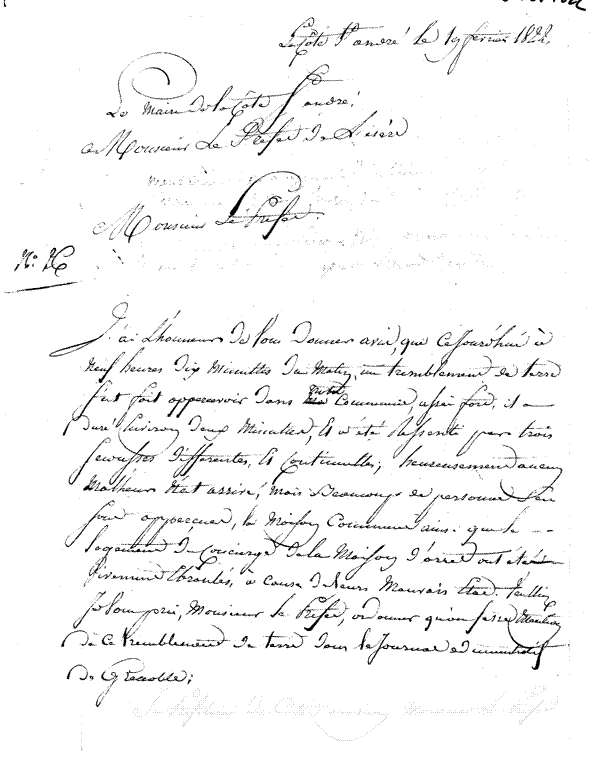 La Côte St andré le 19 février 1822.
Le Maire de la Côte St andré;
a Monsieur Le Préfet de L'isère
Monsieur Le Préfet.
N°.
J'ai L'honneur de Vous Donner avis, que Cejourd'hui à
Neuf heures dix Minuttes du Matin, un tremblement de terre
s'est fait appercevoir dans Commune, assé fort, il a
Duré Environ deux Minuttes, Et a été Ressenti par trois
secousses differentes, Et Continuelles; heureusement aucun
Malheur N'est arrivé, Mais Beaucoup de personne s'en
sont apperçue, la Maison Commune ainsi que le
logement du Concierge de la Maison d'arret ont été
Vivement Ebranlés, à Cause de leurs Mauvais Etat. Veuillez
Je Vous prie, Monsieur le Préfet, ordonner qu'on fasse Mention
de Ce tremblement de terre dans le Journal
de Grenoble;